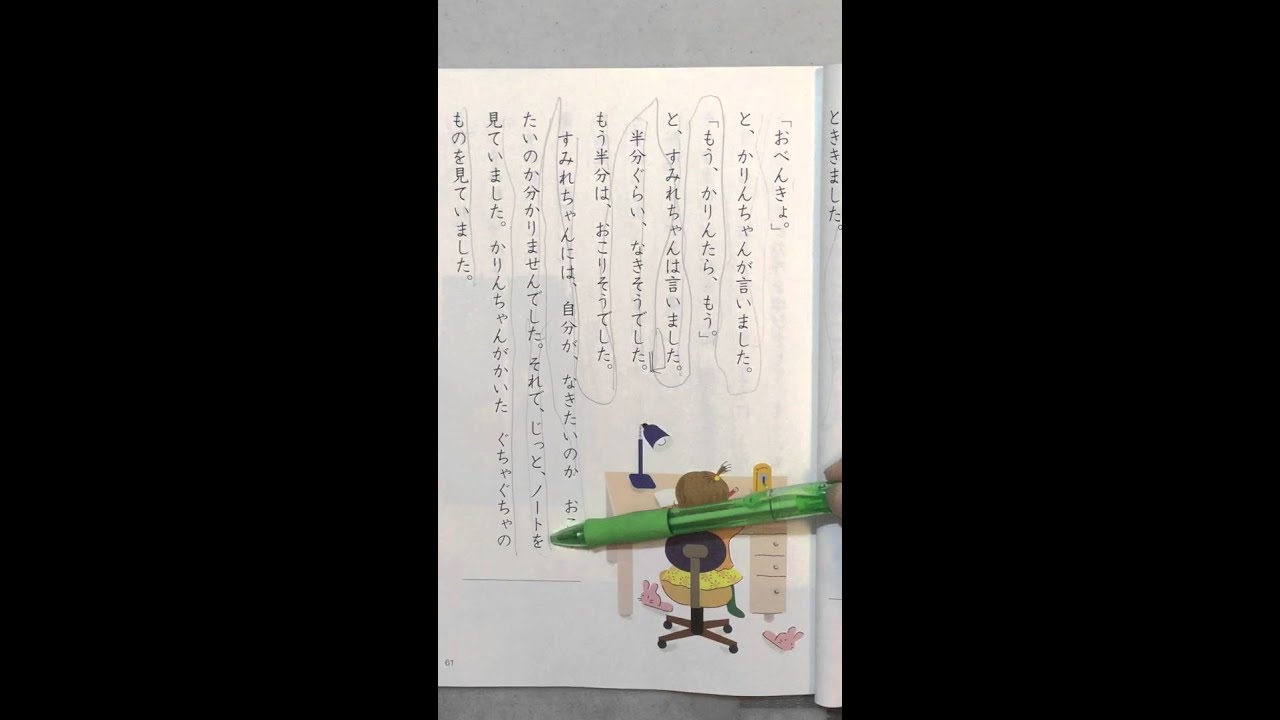 とききました。
「おべんきょ。」
と、かりんちゃんが言いました。
「もう、かりんたら、もう。」
と、すみれちゃんは言いました。
半分ぐらい、なきそうでした。
もう半分は、おこりそうでした。
すみれちゃんには、自分が、なきたいのか おこ
たいのか分かりませんでした。それで、じっと、ノートを
見ていました。かりんちゃんがかいた ぐちゃぐちゃの
ものを見ていました。
61